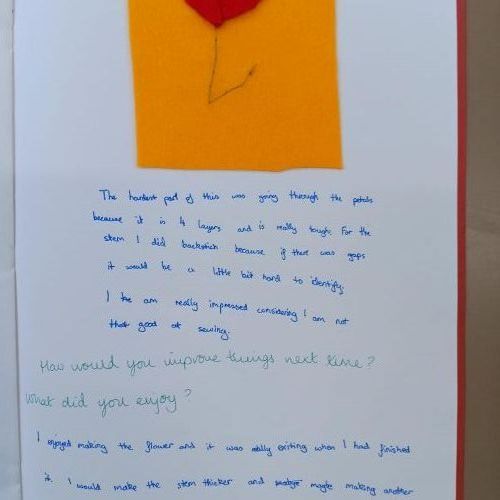 The hardest part of this was going through the petals
because it is 4 layers and is really tough. For the
stem I did backstich because if there was gaps
it would be a little bit hard to identify.
I am really impressed considering I am not
that good at sewing.
How would you improve things next time?
What did you enjoy?
I enjoyed making the flower and it was really exiting when I had finished
it. I would make the stem thicker and maybe making another